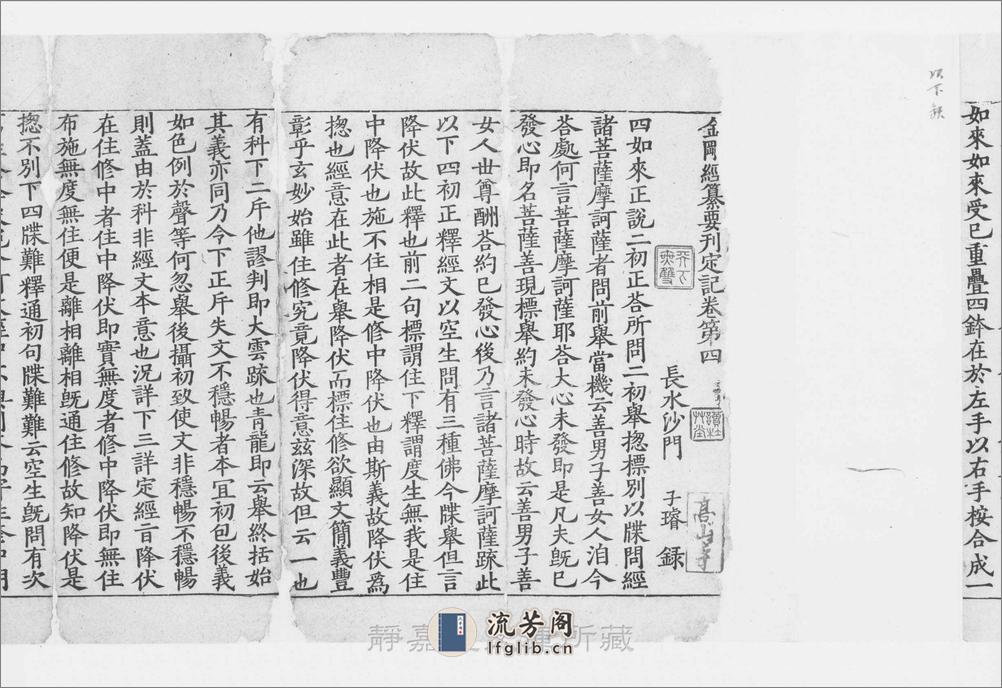 如來如來受已重疊四鉢在於左手以右手按合成一
以下缺
金剛經纂要刊定記卷第四
長水沙門 子璿 録
高山寺
四如來正說二初正荅所問二初舉揔標別以牒問經
諸菩薩摩訶薩者問前舉當機云善男子善女人洎今
荅處何言菩薩摩訶薩耶荅大心未發即是凡夫既已
發心即名菩薩善現標舉約未發心時故云善男子善
女人世尊酬荅約已發心後乃言諸菩薩摩訶薩疏此
以下四初正釋經文以空生問有三種佛今牒舉但言
降伏故此釋也前二句標謂住下釋謂度生無我是住
中降伏也施不住相是修中降伏也由斯義故降伏為
揔也經意在此者在舉降伏而標住修欲顯文簡義豐
彰乎玄妙始雖住修究竟降伏得意茲深故但云一也
有科下二斥他謬判即大雲疏也青龍即云舉終括始
其義亦同乃今下正斥失文不穩暢者本冝初包後義
如色例於聲等何忽舉後攝初致使文非穩暢不穩暢
則蓋由於科非經文本意也況詳下三詳定經旨降伏
在住修中者住中降伏即實無度者修中降伏即無住
布施無度無住便是離相離相既通住修故知降伏是
揔不別下四牒難釋通初句牒難難云空生既問有次
靜嘉 所藏
流芳阁
lfglib.cn